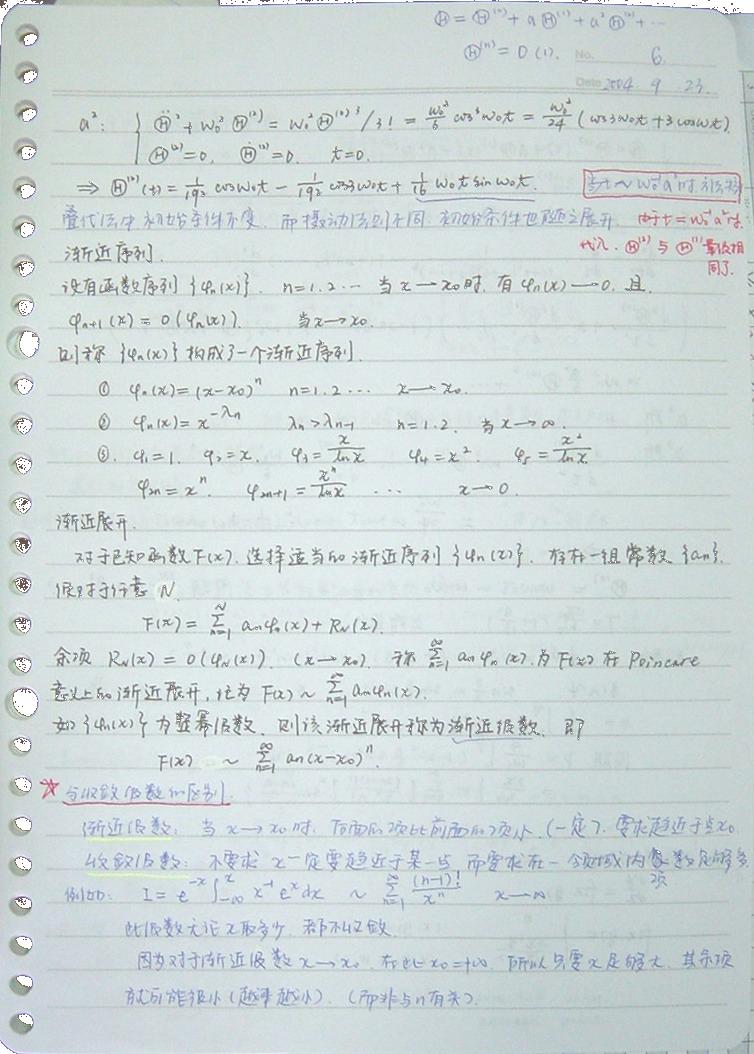 Ⓗ = Ⓗ⁽⁰⁾ + a Ⓗ⁽¹⁾ + a² Ⓗ⁽²⁾ + ⋯
Ⓗ⁽ⁿ⁾ = O(1). No. 6
Date 2004. 9. 23.
a²: { Ⓗ̈⁽²⁾ + ω₀² Ⓗ⁽²⁾ = ω₀² Ⓗ⁽⁰⁾³/3! = ω₀²/6 cos³ω₀t = ω₀²/24 (cos3ω₀t + 3cosω₀t).
Ⓗ⁽²⁾ = 0, Ⓗ̇⁽²⁾ = 0. t = 0.
⇒ Ⓗ⁽²⁾(t) = 1/192 cosω₀t − 1/192 cos3ω₀t + 1/16 ω₀t sinω₀t. 当t~ω₀⁻¹a⁻²时
叠代法中初始条件不变, 而摄动法则不同, 初始条件也随之展开. 由于t=ω₀⁻¹a⁻²时
代入. Ⓗ⁽²⁾与Ⓗ⁽¹⁾量级相同了.
渐近序列.
设有函数序列{φₙ(x)}. n=1.2⋯ 当x→x₀时, 有φₙ(x)→0. 且
φₙ₊₁(x) = o(φₙ(x)). 当x→x₀.
则称{φₙ(x)}构成了一个渐近序列.
① φₙ(x) = (x−x₀)ⁿ n=1.2⋯ x→x₀.
② φₙ(x) = x^(−λₙ) λₙ>λₙ₋₁ n=1.2. 当x→∞.
③. φ₁=1. φ₂=x. φ₃=x/lnx φ₄=x². φ₅=x²/lnx.
φ₂ₙ=xⁿ. φ₂ₙ₊₁=xⁿ/lnx ⋯ x→0.
渐近展开.
对于已知函数F(x). 选择适当的渐近序列{φₙ(x)}. 存在一组常数{aₙ}.
使对于任意N.
F(x) = Σₙ₌₁ᴺ aₙφₙ(x) + R_N(x).
余项 R_N(x) = o(φ_N(x)). (x→x₀). 称 Σₙ₌₁^∞ aₙφₙ(x).为F(x)在Poincare
意义上的渐近展开, 记为 F(x) ~ Σₙ₌₁^∞ aₙφₙ(x).
如{φₙ(x)}为整幂级数. 则该渐近展开称为渐近级数. 即
F(x) ~ Σₙ₌₁^∞ aₙ(x−x₀)ⁿ.
☆ 与收敛级数的区别.
渐近级数: 当x→x₀时, 后面的项比前面的项小.(一定). 要求趋近于点x₀.
收敛级数: 不要求x一定要趋近于某一点 而要求在一个领域内 项数足够多
例如: I = e⁻ˣ ∫₋∞ˣ x⁻¹eˣdx ~ Σₙ₌₁^∞ (n−1)!/xⁿ x→∞
此级数无论x取多少, 都不收敛.
因为对于渐近级数x→x₀. 在此x₀=+∞. 所以只要x足够大. 其余项
就可能很小(越来越小). (而非与n有关).